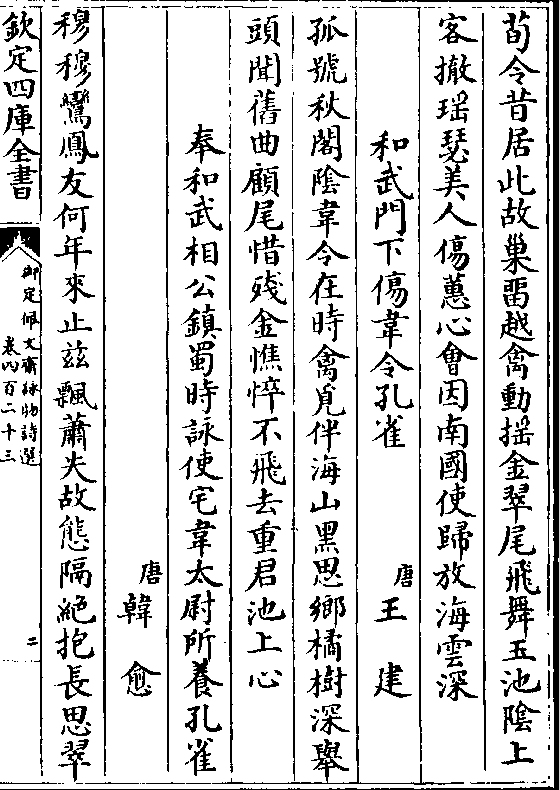 荀令昔居此故巢留越禽動揺金翠尾飛舞玉池隂上
客撤瑶瑟美人傷蕙心㑹因南國使歸放海雲深
和武門下傷韋令孔雀
唐王建
孤號秋閣隂韋令在時禽覓伴海山黒思鄉橘樹深舉
頭聞舊曲顧尾惜殘金憔悴不飛去重君池上心
奉和武相公鎮蜀時詠使宅韋太尉所養孔雀
唐韓愈
穆穆鸞鳳友何年來止兹飄蕭失故態隔絶抱長思翠
欽定四庫全書
御定佩文齋詠物詩選
卷四百二十三
二